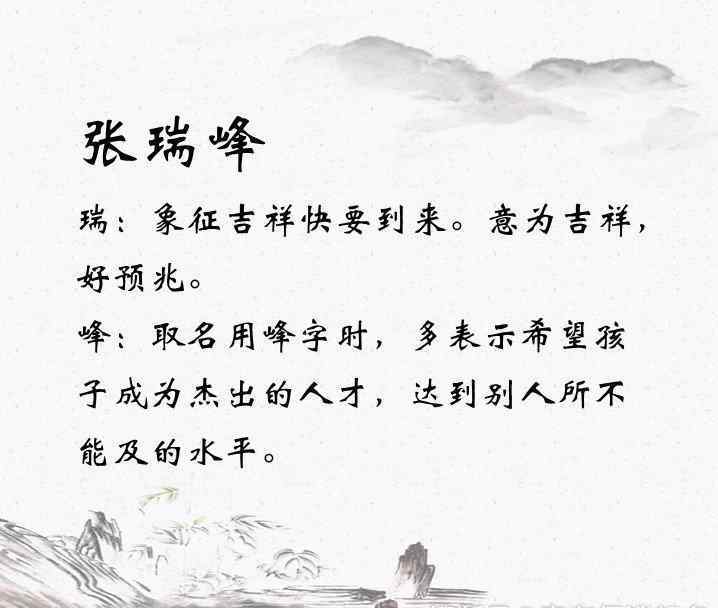 张瑞峰
瑞：象征吉祥快要到来。意为吉祥，
好预兆。
峰：取名用峰字时，多表示希望孩
子成为杰出的人才，达到别人所不
能及的水平。